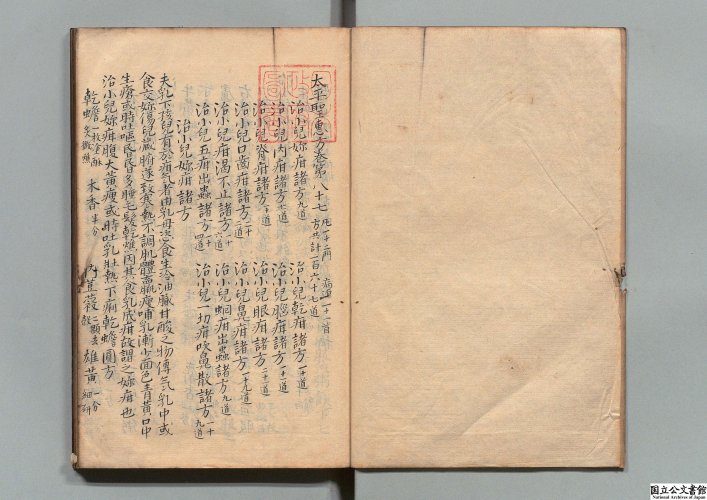 太平聖惠方卷第八十七 凡一十二門 病源一十一首 方共計一百六十七道
治小兒妳疳諸方九道
治小兒乾疳諸方一十道
治小兒內疳諸方
治小兒腦疳諸方一十道
治小兒脊疳諸方
治小兒眼疳諸方
治小兒口齒疳諸方二十道
治小兒鼻疳諸方一十九道
治小兒疳渴不止諸方一十六道
治小兒蚘疳出蟲諸方九道
治小兒五疳出蟲諸方四道
治小兒一切疳吹鼻散諸方一十九道
治小兒妳疳諸方
夫乳下孩兒有於疳氣者由乳母恣食生冷油膩甘酸之物傳氣乳中或
食交妳傷兒藏腑遂致寒熱不調肌體羸瘦哺乳漸少面色青黃口中
生瘡或時吐嘔昏昏多睡毛髮乾燋因其食乳底疳故謂之妳疳也
治小兒妳疳腹大黃瘦或時吐乳壯熱下痢乾蟾圓方
乾蟾一枚塗酥炙微燋 木香半分 肉荳蔻二顆去殼 雄黃一分細研
国立公文書館
National Archives of Japan